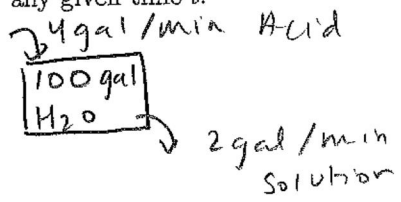 any given time t.
4 gal/min Acid
100 gal
H2O
2 gal/min
Solution